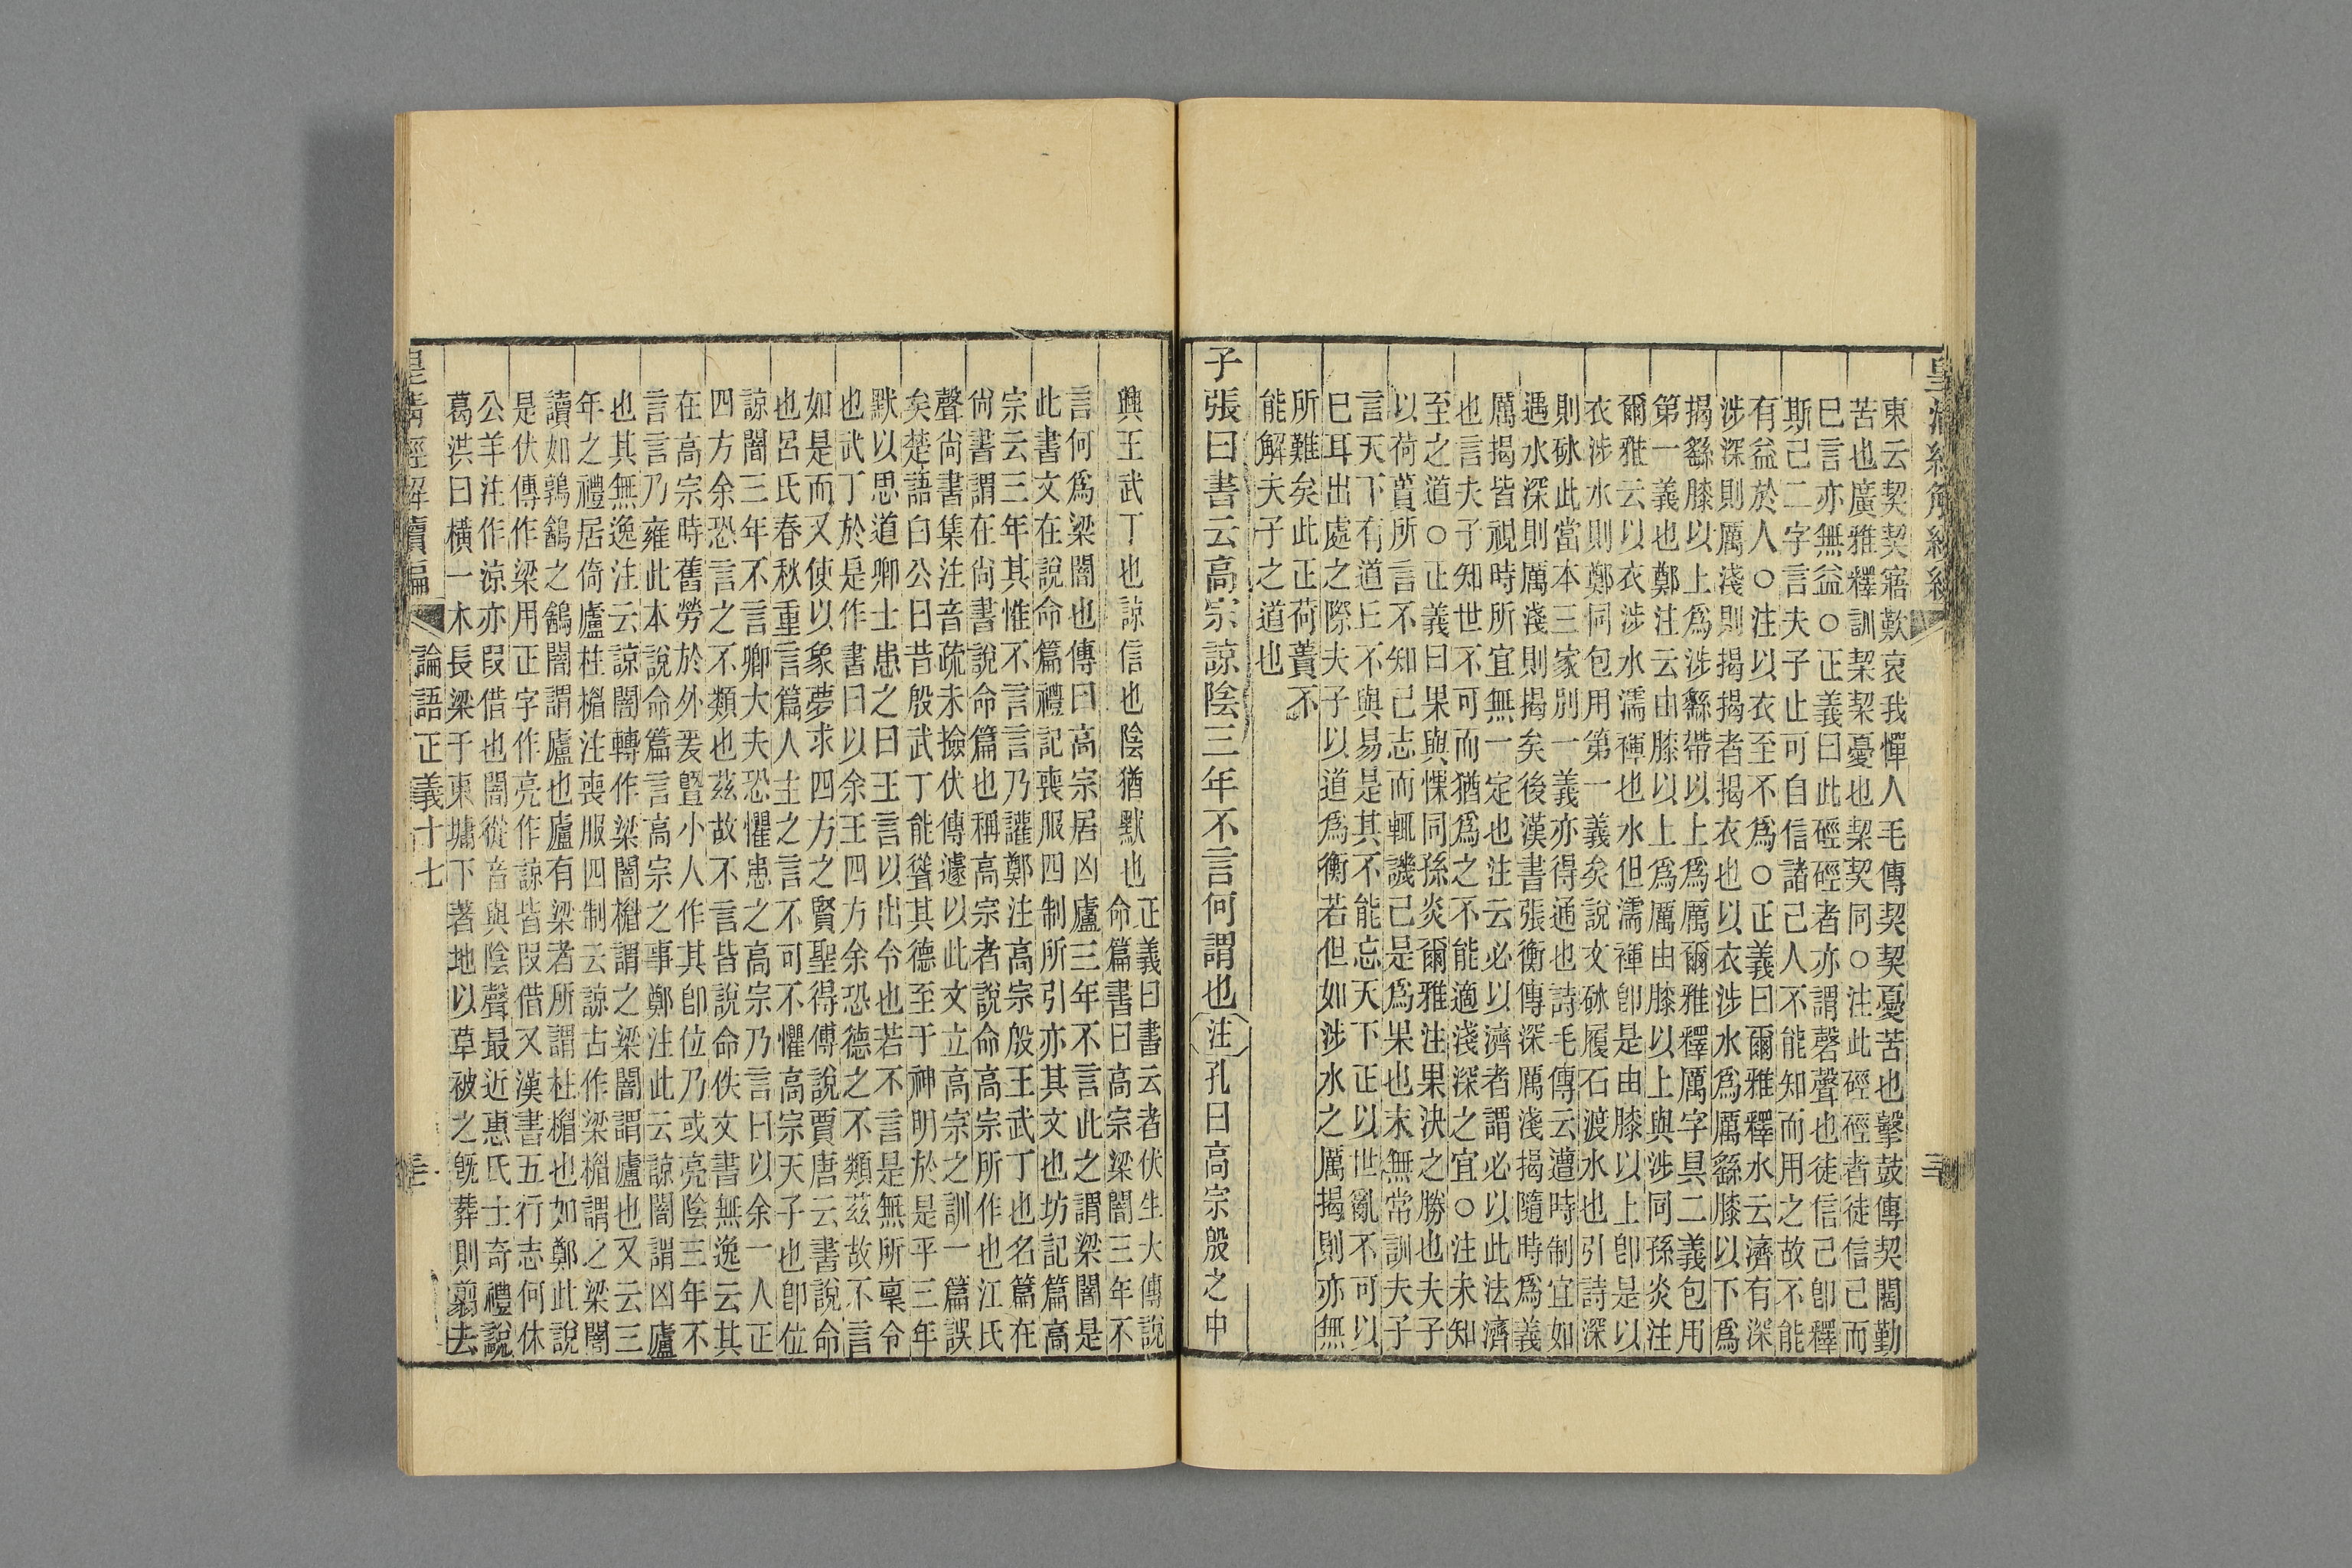 東云契契寤歎哀我憚人毛傳契契憂苦也擊鼓傳契闊勤
苦也廣雅釋訓契契憂也契契同○注此硜硜者徒信己而
巳言亦無益○正義曰此硜硜者亦謂磬聲也徒信己卽釋
斯己二字言夫子止可自信諸己人不能知而用之故不能
有益於人○注以衣至不爲○正義曰爾雅釋水云濟有深
涉深則厲淺則揭揭者揭衣也以衣涉水爲厲繇膝以下爲
揭繇膝以上爲涉繇帶以上爲厲爾雅釋厲字具二義包用
第一義也鄭注云由膝以上爲厲由膝以上與涉同孫炎注
爾雅云以衣涉水濡褌也水但濡褌卽是由膝以上卽是以
衣涉水則鄭同包用第一義矣說文砅履石渡水也引詩深
則砅此當本三家別一義亦得通也詩毛傳云遭時制宜如
遇水深則厲淺則揭矣後漢書張衡傳深厲淺揭隨時爲義
厲揭皆視時所宜無一定也注云必以濟者謂必以此法濟
也言夫子知世不可而猶爲之不能適淺深之宜○注未知
至之道○正義曰果與惈同孫炎爾雅注果決之勝也夫子
以荷蕢所言不知己志而輒譏己是爲果也末無常訓夫子
言天下有道丘不與易是其不能忘天下正以世亂不可以
巳耳出處之際夫子以道爲衡若但如涉水之厲揭則亦無
所難矣此正荷蕢不
能解夫子之道也
子張曰書云高宗諒陰三年不言何謂也注孔曰高宗殷之中
興王武丁也諒信也陰猶默也
正義曰書云者伏生大傳說
命篇書曰高宗梁闇三年不
言何爲梁闇也傳曰高宗居凶廬三年不言此之謂梁闇是
此書文在說命篇禮記喪服四制所引亦其文也坊記篇高
宗云三年其惟不言言乃讙鄭注高宗殷王武丁也名篇在
尙書謂在尙書說命篇也稱高宗者說命高宗所作也江氏
聲尙書集注音疏未撿伏傳遽以此文立高宗之訓一篇誤
矣楚語白公曰昔殷武丁能聳其德至于神明於是乎三年
默以思道卿士患之曰王言以出令也若不言是無所稟令
也武丁於是作書曰以余正四方余恐德之不類茲故不言
如是而又使以象夢求四方之賢聖得傅說賈唐云書說命
也呂氏春秋重言篇人主之言不可不懼高宗天子也卽位
諒闇三年不言卿大夫恐懼患之高宗乃言曰以余一人正
四方余恐言之不類也茲故不言皆說命佚文書無逸云其
在高宗時舊勞於外爰曁小人作其卽位乃或亮陰三年不
言言乃雍此本說命篇言高宗之事鄭注此云諒闇謂凶廬
也其無逸注云諒闇轉作梁闇楣謂之梁闇謂廬也又云三
年之禮居倚廬柱楣注喪服四制云諒古作梁楣謂之梁闇
讀如鶉鷂之鷂闇謂廬也廬有梁者所謂柱楣也如鄭此說
是伏傳作梁用正字作亮作諒皆叚借又漢書五行志何休
公羊注作涼亦叚借也闇從音與陰聲最近惠氏士奇禮說
葛洪曰橫一木長梁于東墉下著地以草被之旣葬則翦去
皇清經解續編
論語正義十七